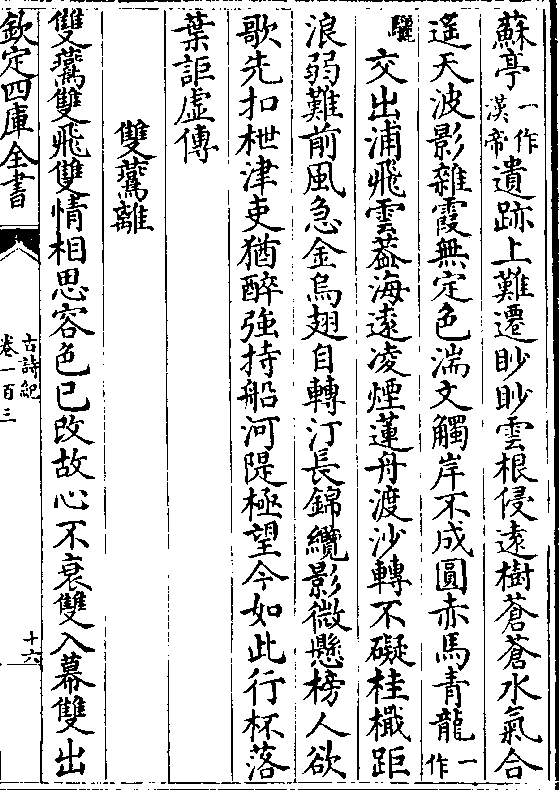 蘇亭一作漢帝遺跡上難遷眇眇雲根侵遠樹蒼蒼水氣合
遥天波影雜霞無定色湍文觸岸不成圓赤馬青龍一作
驪交出浦飛雲葢海遠凌煙蓮舟渡沙轉不礙桂檝距
浪弱難前風急金烏翅自轉汀長錦纜影微懸榜人欲
歌先扣枻津吏猶醉強持船河隄極望今如此行杯落
葉詎虚傳
雙鷰離
雙鷰雙飛雙情相思容色已改故心不衰雙入幕雙出
欽定四庫全書
古詩紀
卷一百三
十六